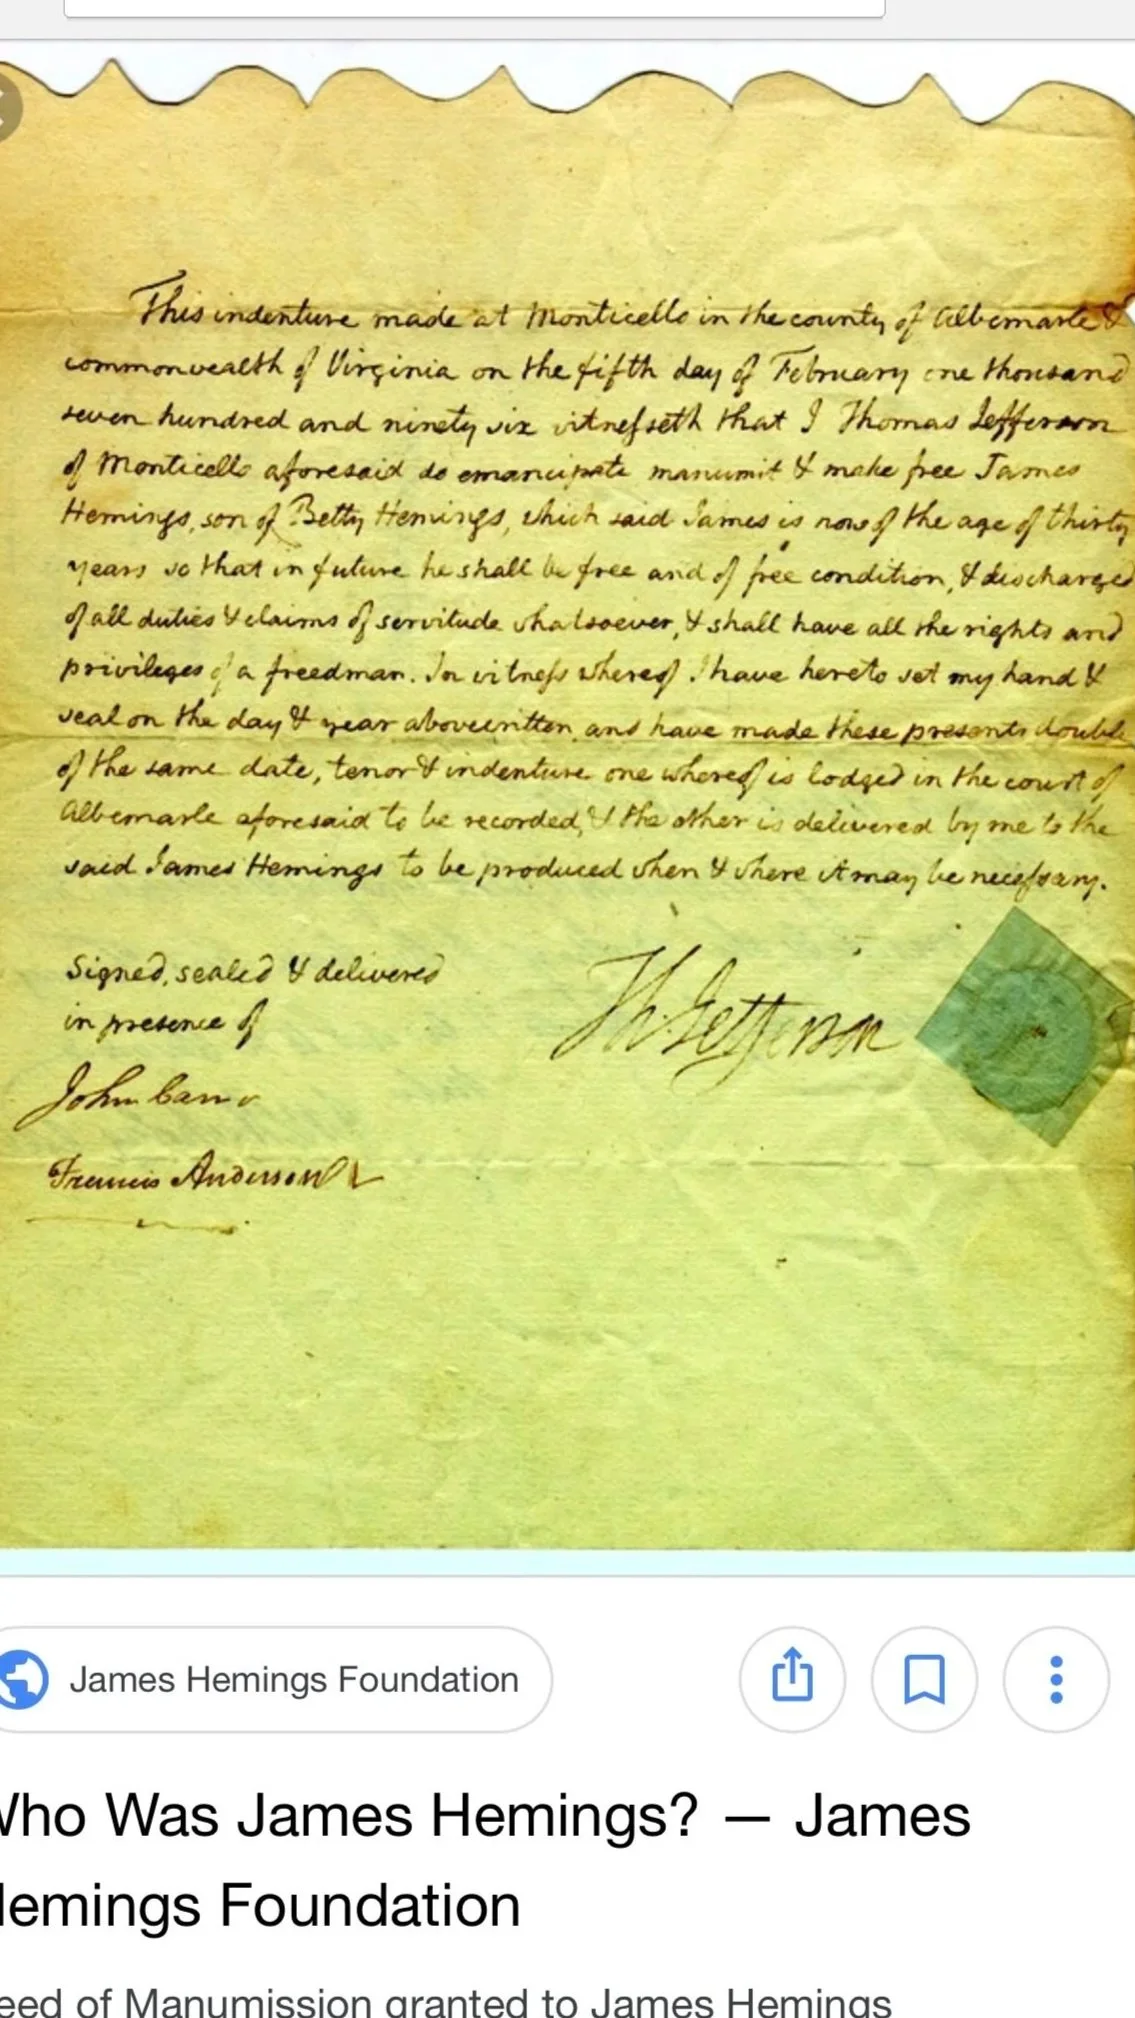 This indenture made at Monticello in the county of Albemarle &
commonwealth of Virginia on the fifth day of February one thousand
seven hundred and ninety six witnesseth that I Thomas Jefferson
of Monticello aforesaid do emancipate manumit & make free James
Hemings, son of Betty Hemings, which said James is now of the age of thirty
years so that in future he shall be free and of free condition, & discharged
of all duties & claims of servitude whatsoever, & shall have all the rights and
privileges of a freedman. In witness whereof I have hereto set my hand &
seal on the day & year abovewritten, and have made these presents double
of the same date, tenor & indenture one whereof is lodged in the court of
Albemarle aforesaid to be recorded, & the other is delivered by me to the
said James Hemings to be produced when & where it may be necessary.
Signed, sealed & delivered
in presence of
Th: Jefferson
John Carr
Francis Anderson
James Hemings Foundation
Who Was James Hemings? — James
Hemings Foundation
eed of Manumission granted to James Hemings